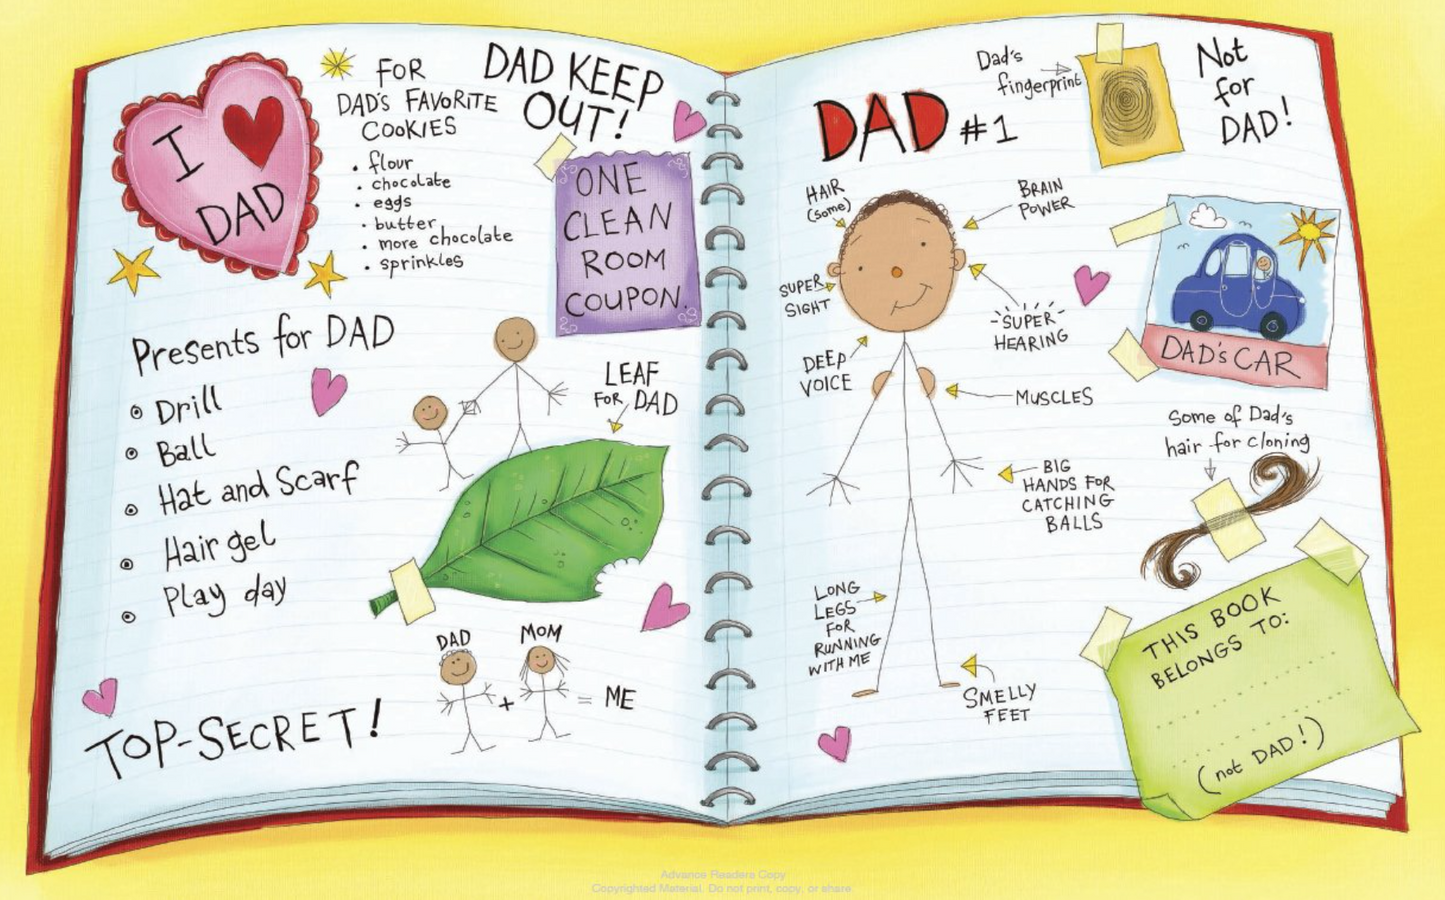 I
DAD
FOR
DAD'S FAVORITE
COOKIES
• flour
• chocolate
• eggs
• butter
• more chocolate
• sprinkles
DAD KEEP
OUT!
ONE
CLEAN
ROOM
COUPON.
Presents for DAD
Drill
Ball
Hat and Scarf
Hair gel
Play day
LEAF
FOR DAD
DAD
MOM
+ = ME
TOP-SECRET!
DAD #1
Dad's
fingerprint
Not
for
DAD!
HAIR
(some)
BRAIN
POWER
SUPER
SIGHT
SUPER
HEARING
DEEP
VOICE
MUSCLES
BIG
HANDS FOR
CATCHING
BALLS
LONG
LEGS
FOR
RUNNING
WITH ME
SMELLY
FEET
DAD'S CAR
Some of Dad's
hair for cloning
THIS BOOK
BELONGS TO:
(not DAD!)
Advance Readers Copy
Copyrighted Material. Do not print, copy, or share.